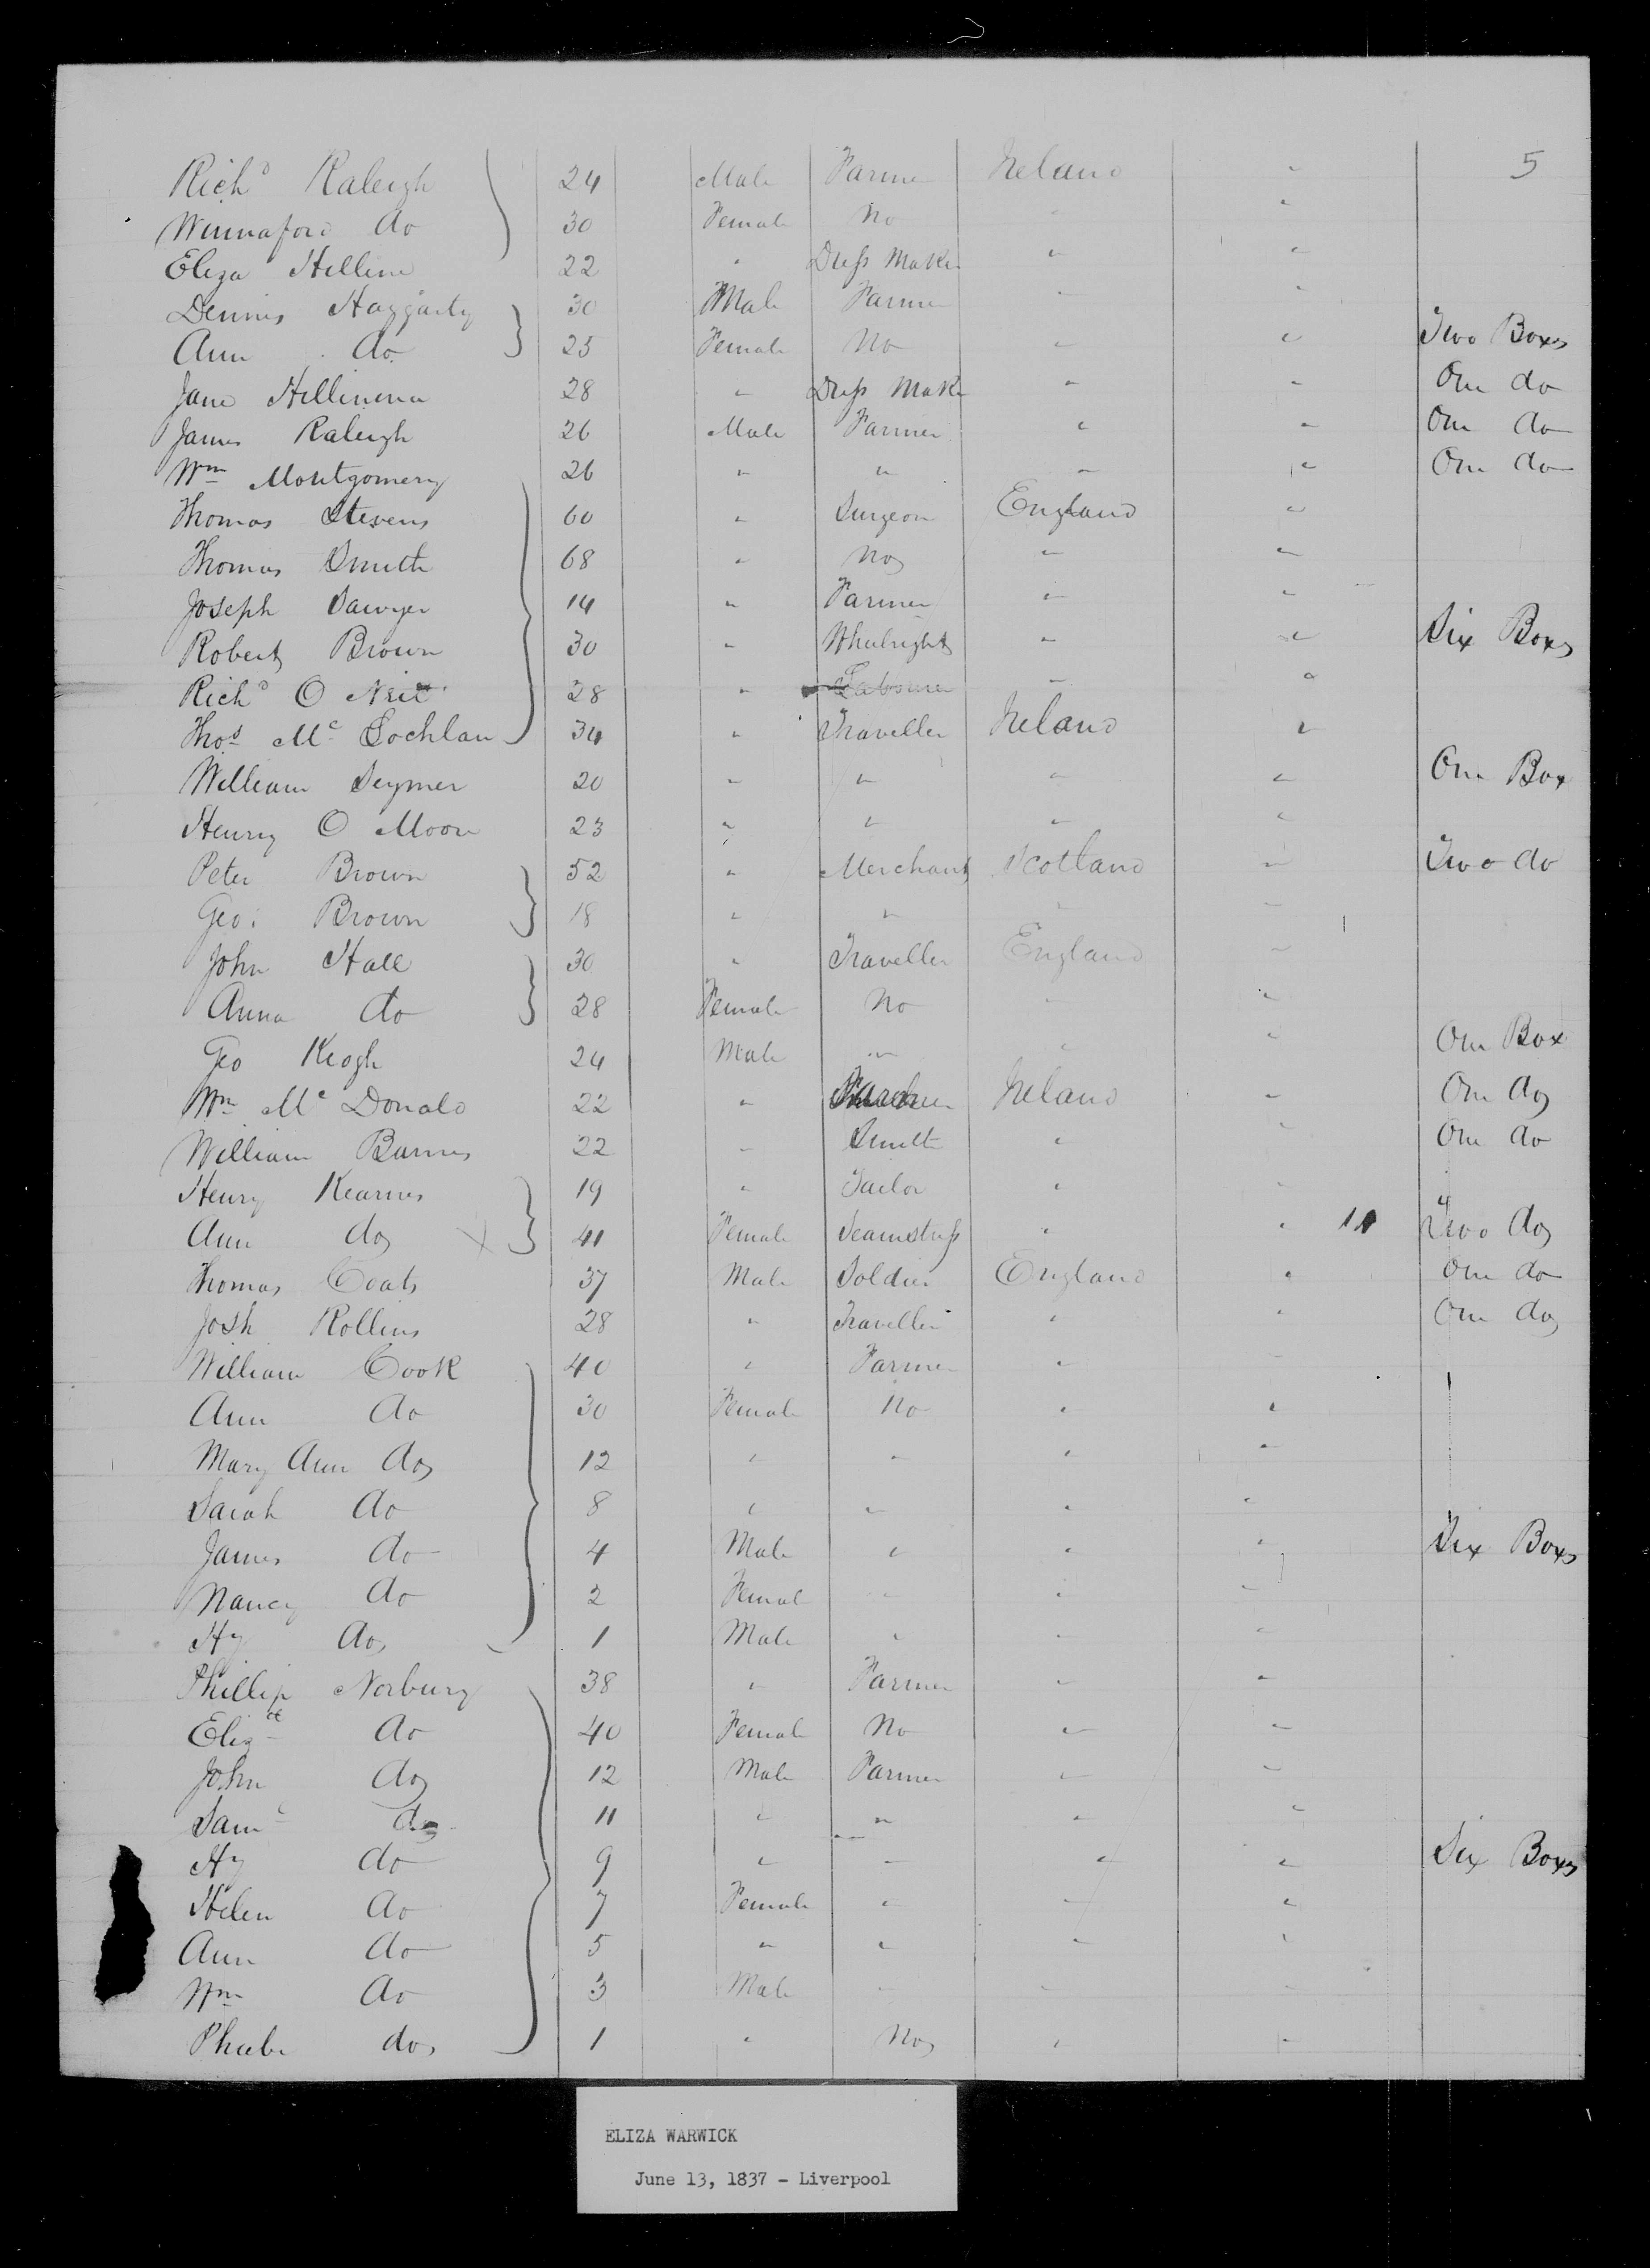 5
Rich^d Raleigh 24 Male Farmer Ireland "
Winnaford do 30 Female No " "
Eliza Hilline 22 " Dress Maker " "
Dennis Haggarty 30 Male Farmer " "
Ann do 25 Female No " " Two Boxes
Jane 28 " Dress Maker " " One do
James Raleigh 26 Male Farmer " " One do
Wm Montgomery 26 " " " " One do
Thomas Stevens 60 " Surgeon England "
Thomas Smith 68 " No " "
Joseph Sawyer 14 " Farmer " "
Robert Brown 30 " Whelright " " Six Boxes
Rich^d O Neil 28 " Labourer " "
Thos Mc Lochlan 34 " Traveller Ireland "
William Seymer 20 " " " " One Box
Henry O Moore 23 " " " "
Peter Brown 52 " Merchant Scotland " Two do
Geo: Brown 18 " " " "
John Hall 30 " Traveller England "
Anna do 28 Female No " "
Geo Keogh 24 Male " " " One Box
Wm Mc Donald 22 " Ireland " One do
William Barnes 22 " Smith " " One do
Henry Kearnes 19 " Tailor " "
Ann do X 41 Female Seamstress " " 11 Two do
Thomas Coats 37 Male Soldier England " One do
Josh Rollins 28 " Traveller " " One do
William Cook 40 " Farmer " "
Ann do 30 Female No " "
Mary Ann do 12 " " " "
Sarah do 8 " " " "
James do 4 Male " " " Six Boxes
Nancy do 2 Female " " "
Hy do 1 Male " " "
Phillip Norbury 38 " Farmer " "
Eliz^th do 40 Female No " "
John do 12 Male Farmer " "
Sam^l do 11 " " " "
Hy do 9 " " " " Six Boxes
Helen do 7 Female " " "
Ann do 5 " " " "
Wm do 3 Male " " "
Phebe do 1 " No " "
ELIZA WARWICK
June 13, 1837 - Liverpool